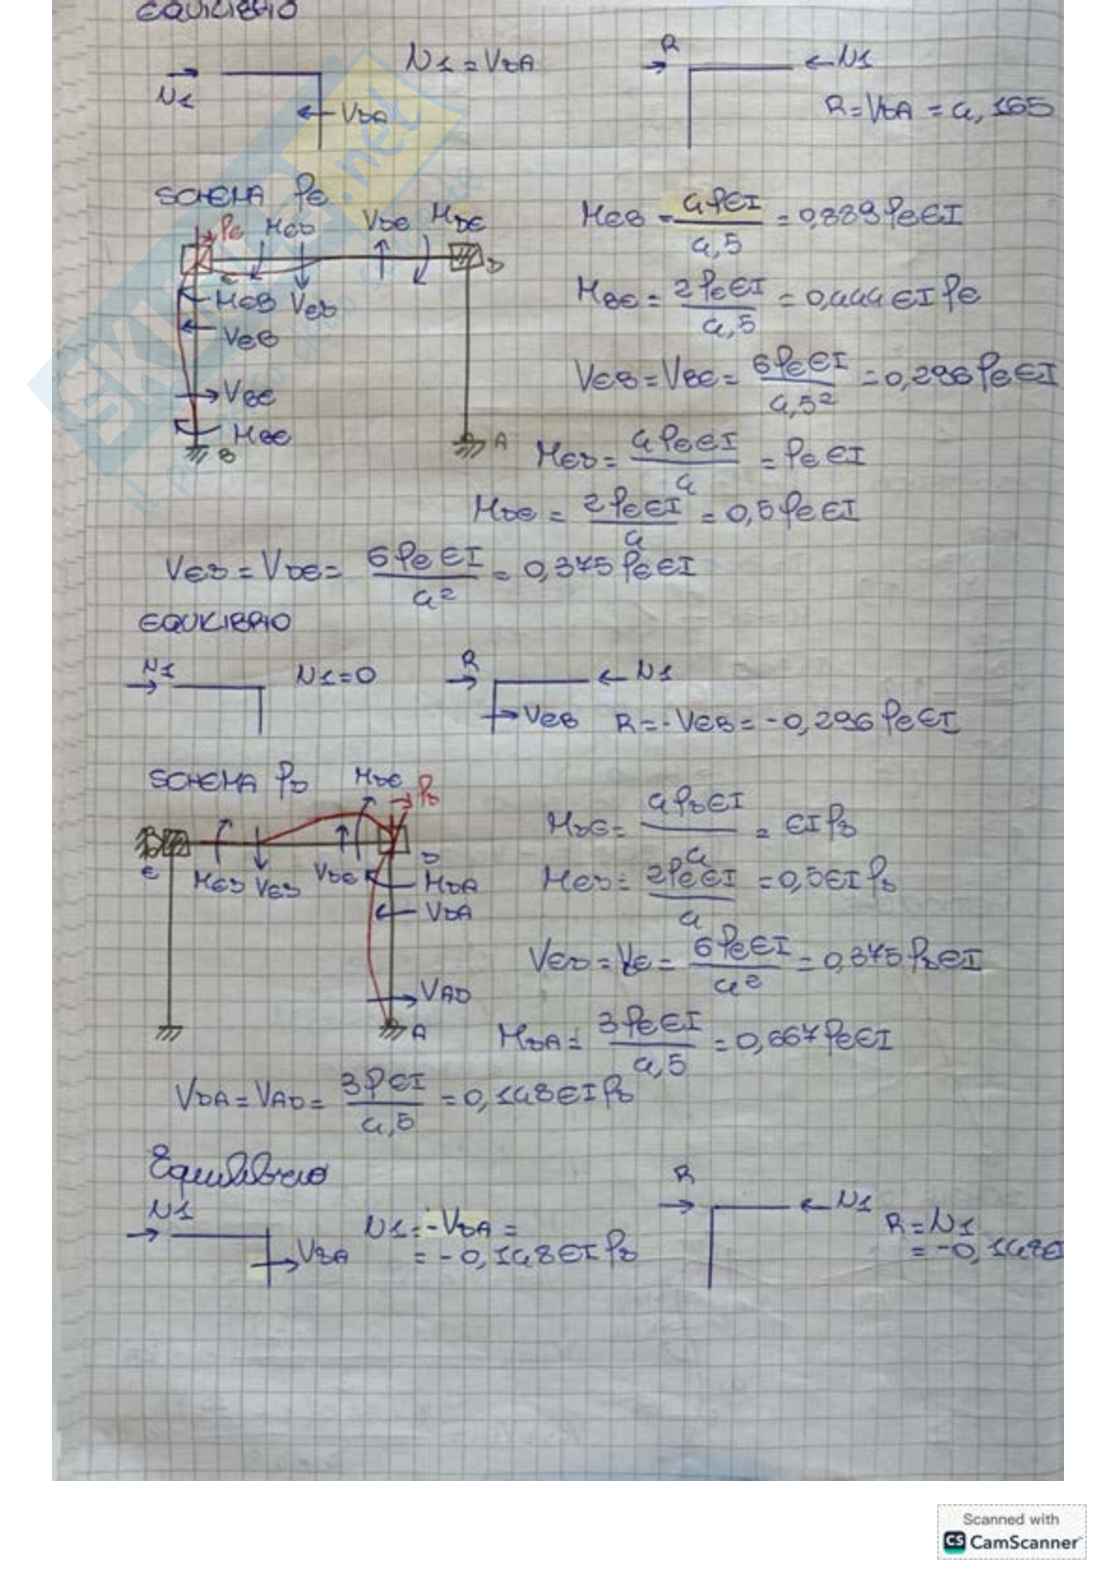 EQUILIBRIO
N1 N1 = VDA R ← N1
VDA R = VDA = 4,165
SCHEMA φE
φE MED VDE MDE
E D
MEB VED
VEB
VBE
MBE
B A
MEB = 4φEI / 4,5 = 0,889 φE EI
MBE = 2φE EI / 4,5 = 0,444 EI φE
VEB = VBE = 6φE EI / 4,5² = 0,296 φE EI
MED = 4φE EI / 4 = φE EI
MDE = 2φE EI / 4 = 0,5 φE EI
VED = VDE = 6φE EI / 4² = 0,375 φE EI
EQUILIBRIO
N1 N1 = 0 R ← N1
VEB R = -VEB = -0,296 φE EI
SCHEMA φD
MDE φD
E D
MED VED VDE MDA
VDA
VAD
A
MDE = 4φD EI / 4 = EI φD
MED = 2φE EI / 4 = 0,5 EI φD
VED = VE = 6φE EI / 4² = 0,375 φD EI
MDA = 3φE EI / 4,5 = 0,667 φE EI
VDA = VAD = 3φEI / 4,5 = 0,148 EI φD
Equilibrio
N1 N1 = -VDA = R ← N1 R = N1
VDA = -0,148 EI φD = -0,148 E
Scanned with
CS CamScanner